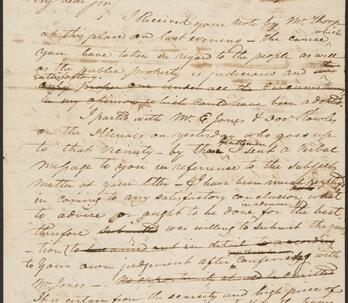 My dear Sir
I Received your note by Mr. Thorp
at this place on last evening – the course which
you have taken in regard to the people as well
as the public property is judicious and
satisfactory
only under all the circumstances
in my opinion which could have been adopted.
I parted with Mr. E Jones & Doct.
on the Illinois on yesterday who goes up
to that vicinity – by that gentleman I sent a verbal
message to you in reference to the subject
matter of your letter – I have been much
in coming to any satisfactory conclusion what
to advise or ought to be done for the best
therefore was willing to submit the
tion to be carried out in detail
to your own judgement after conferring with
Mr Jones –
It is certain from the scarcity and high price of